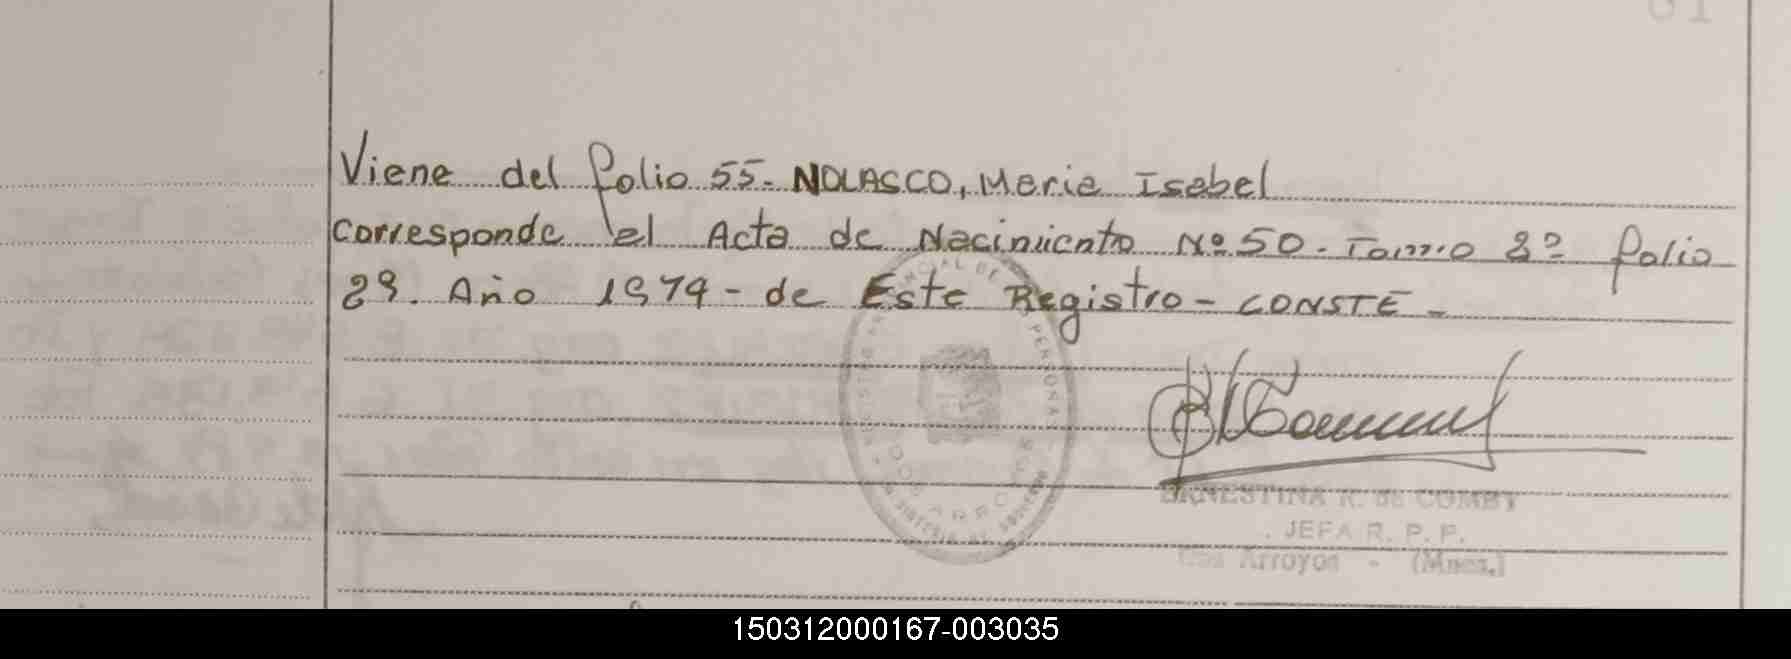 Viene del folio 55. NOLASCO, Maria Isabel
corresponde al Acta de Nacimiento Nº 50. Tomo 2º folio
29. Año 1974 - de Este Registro - CONSTE -
ERNESTINA R. de COMBY
JEFA R. P. P.
Dos Arroyos - (Mnes.)
DOS ARROYOS
150312000167-003035